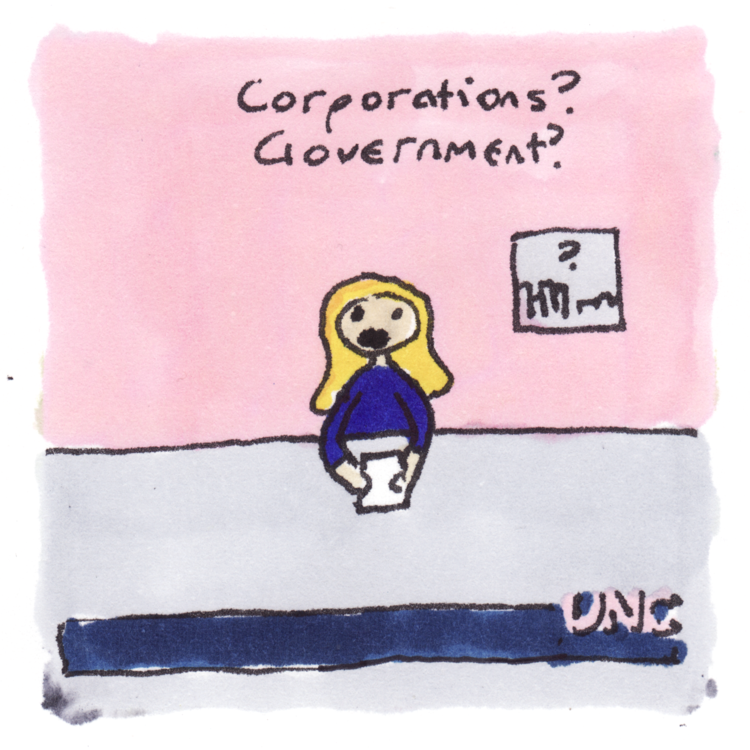 Corporations?
Government?
?
UNC